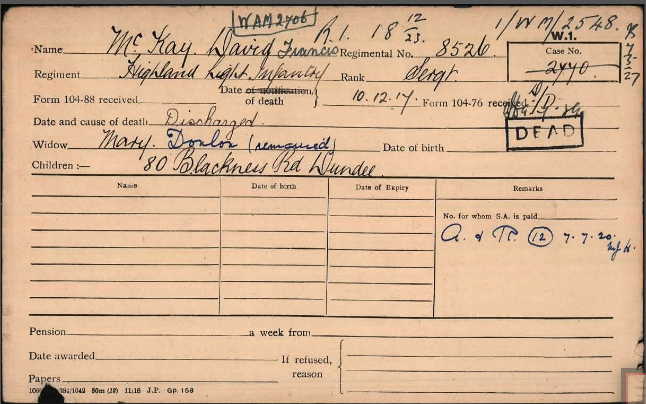 WAM2706 R.1. 18 12/23. 1/WM/2548.
W.1.
Name Mc Kay David Francis Regimental No. 8526 Case No.
2440.
Regiment Highland Light Infantry Rank Sergt
Date of notification, of death
Form 104-88 received 10.12.17. Form 104-76 received
Date and cause of death Discharged
DEAD
Widow Mary. Donlon (remarried) Date of birth
Children :— 80 Blackness Rd Dundee.
Name Date of birth Date of Expiry Remarks
No. for whom S.A. is paid
A. & P. 12 7.7.20.
Pension a week from
Date awarded If refused, reason
Papers
50m (12) 11/18 J.P. Gp. 158